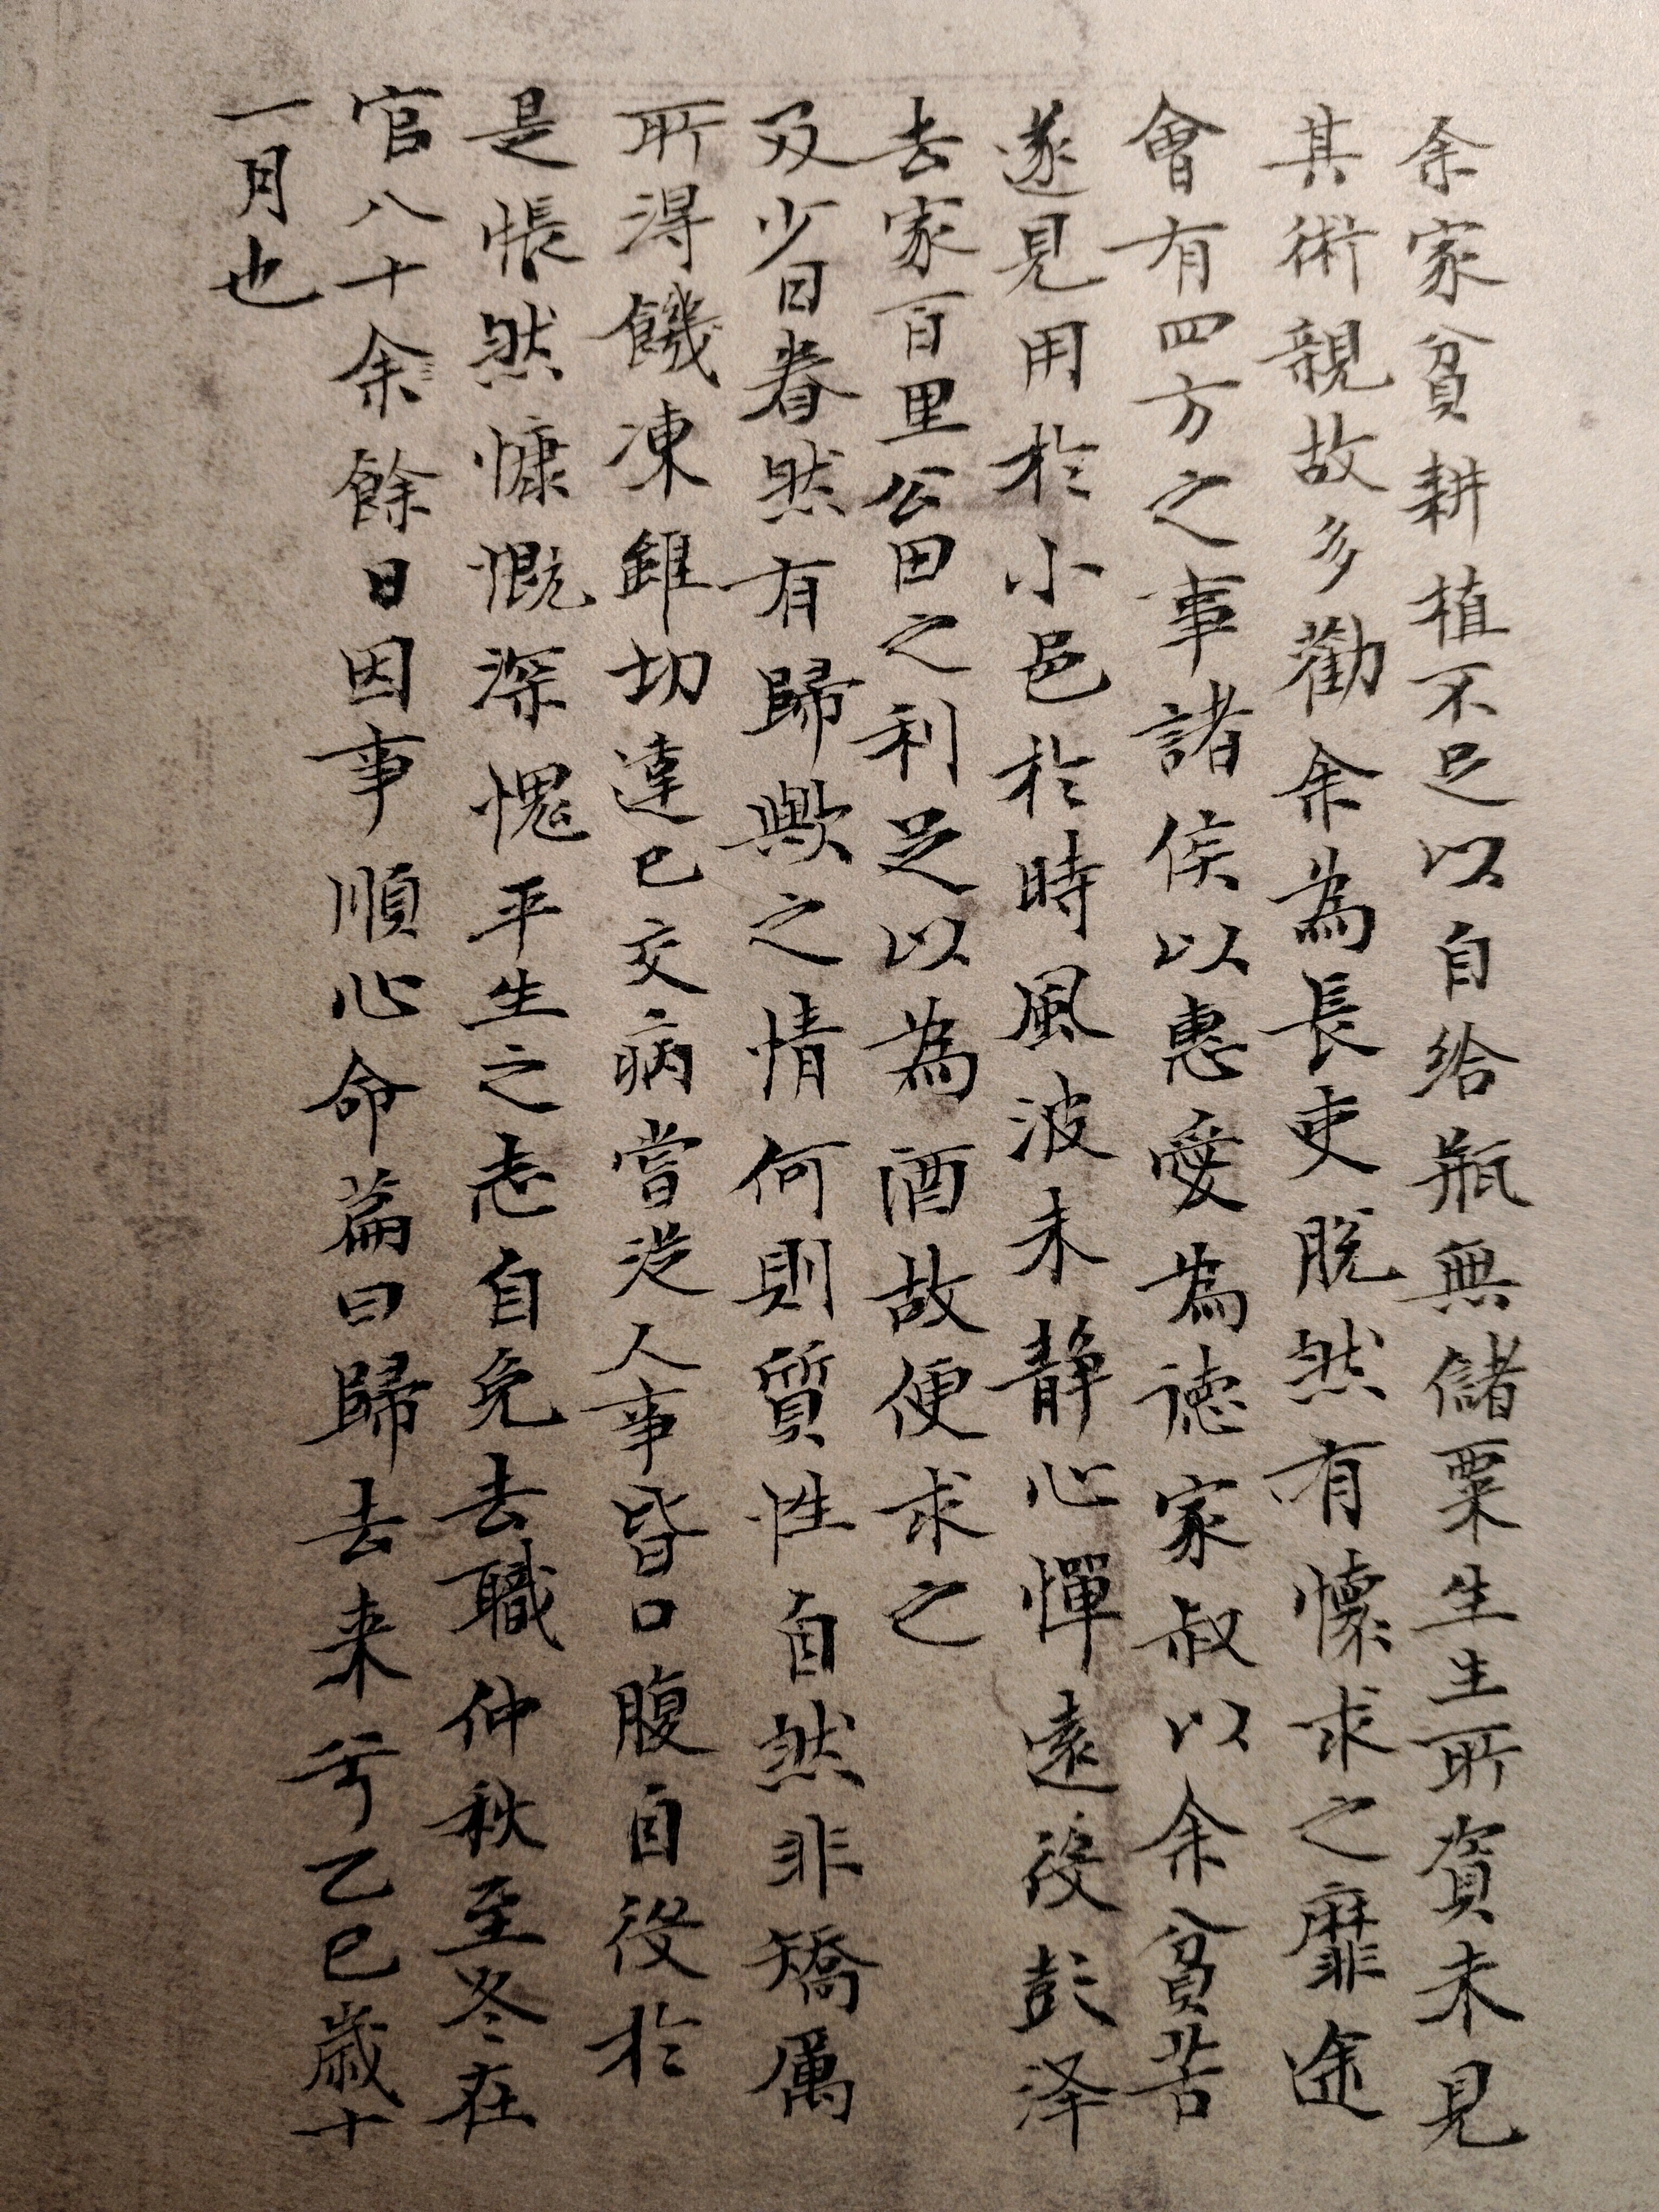 余家貧耕植不足以自給瓶無儲粟生生所資未見
其術親故多勸余為長吏脫然有懷求之靡途
會有四方之事諸侯以惠愛為德家叔以余貧苦
遂見用於小邑於時風波未靜心憚遠役彭泽
去家百里公田之利足以為酒故便求之
及少日眷然有歸歟之情何則質性自然非矯厲
所得饑凍雖切違已交病嘗從人事皆口腹自役於
是悵然慷慨深愧平生之志自免去職仲秋至冬在
官八十余餘日因事順心命篇曰歸去来兮乙巳歲十
一月也